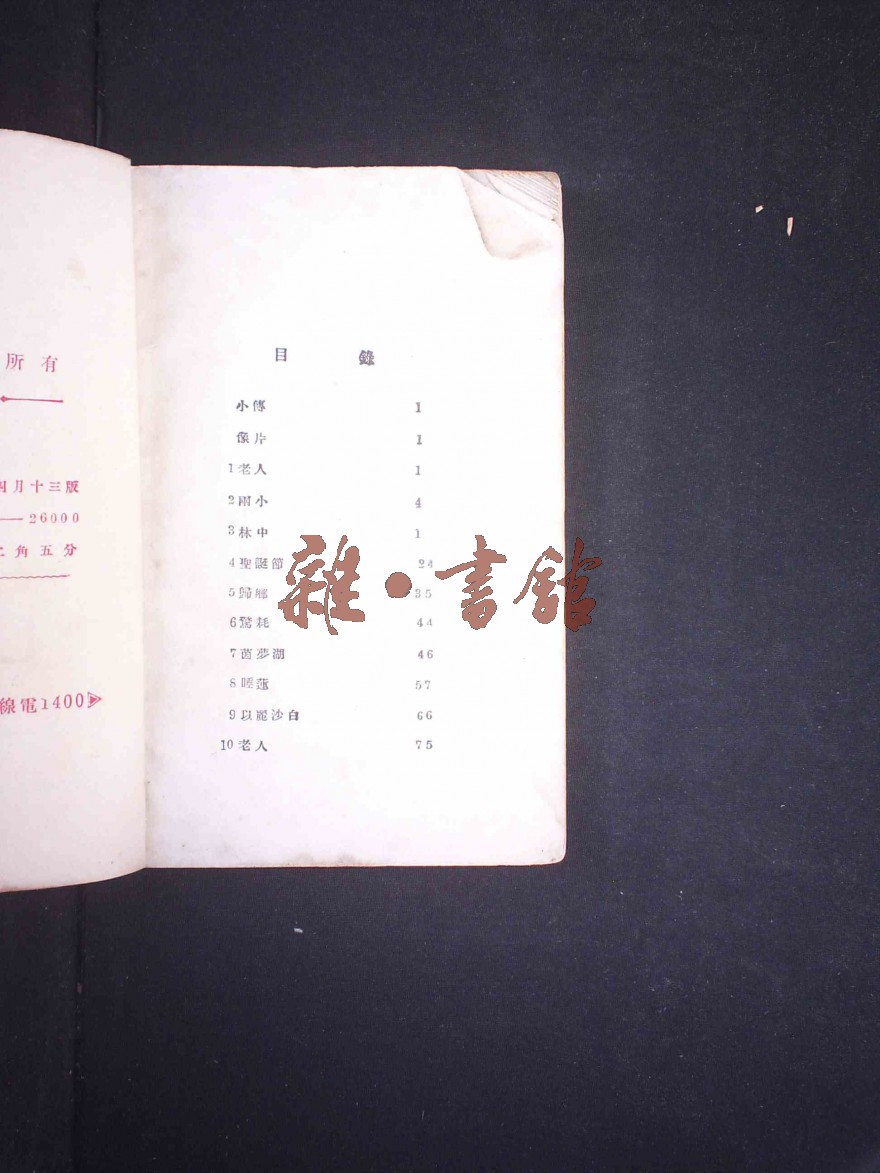 所有
四月十三版
—26000
二角五分
線電1400
目錄
小傳 1
像片 1
1 老人 1
2 兩小 4
3 林中 1
4 聖誕節 24
5 歸鄉 35
6 驚耗 44
7 茵夢湖 46
8 睡蓮 57
9 以麗沙白 66
10 老人 75
雜·書館